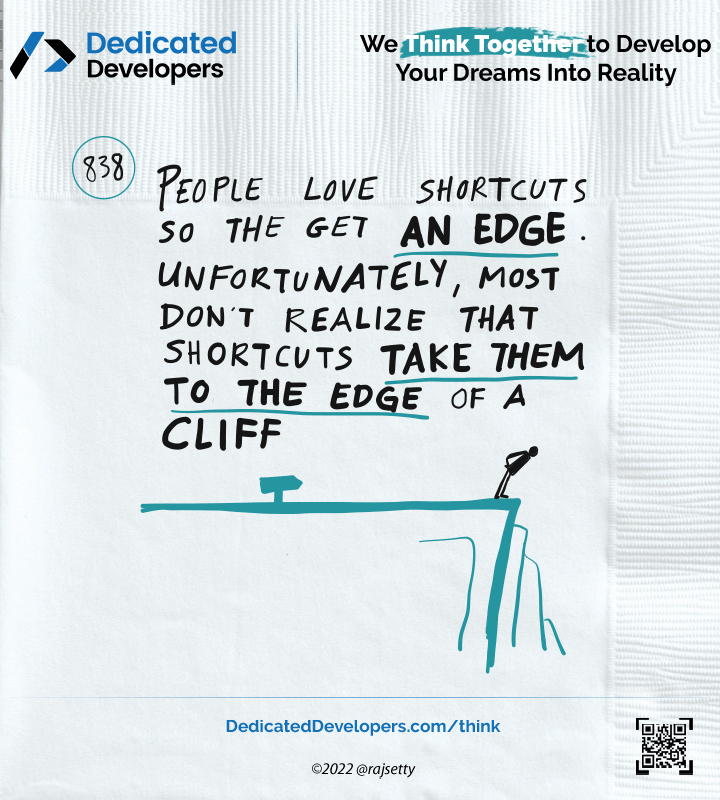 Dedicated
Developers
We Think Together to Develop
Your Dreams Into Reality
838
PEOPLE LOVE SHORTCUTS
SO THE GET AN EDGE.
UNFORTUNATELY, MOST
DON'T REALIZE THAT
SHORTCUTS TAKE THEM
TO THE EDGE OF A
CLIFF
DedicatedDevelopers.com/think
©2022 @rajsetty